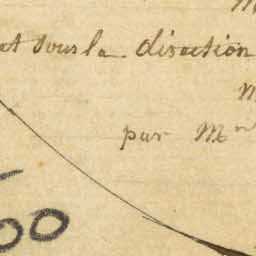 M
et sous la direction
M
par Mr
00